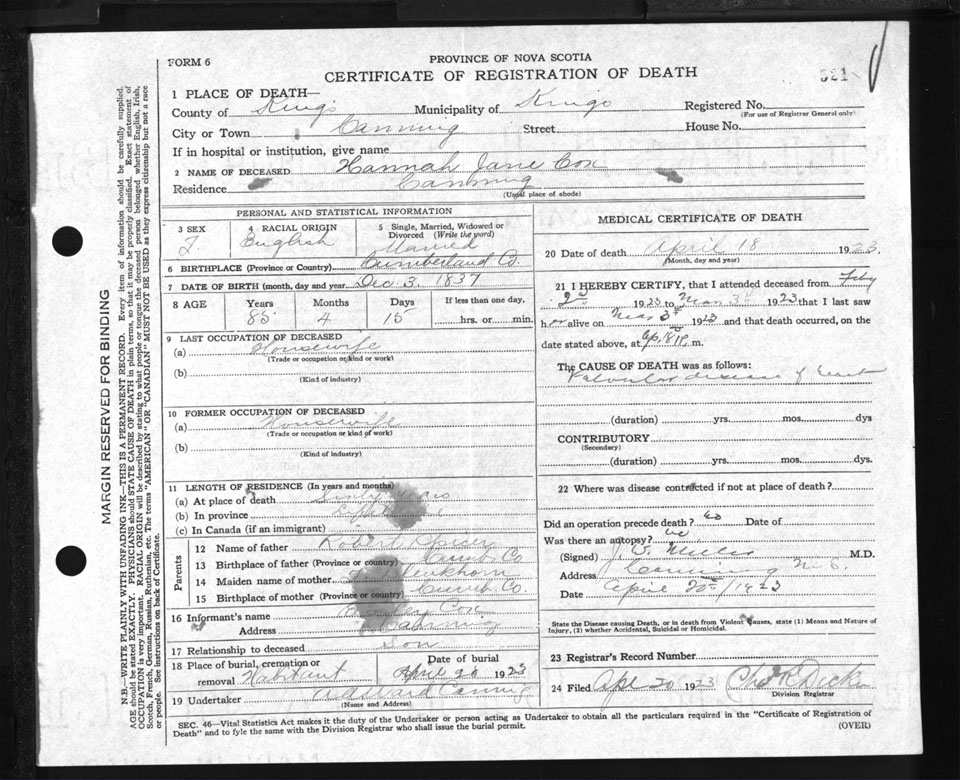 FORM 6
PROVINCE OF NOVA SCOTIA
CERTIFICATE OF REGISTRATION OF DEATH
321
1 PLACE OF DEATH—
County of Kings Municipality of Kings Registered No.
(For use of Registrar General only)
City or Town Canning Street House No.
If in hospital or institution, give name
2 NAME OF DECEASED Hannah Jane Cox
Residence Canning
(Usual place of abode)
PERSONAL AND STATISTICAL INFORMATION
3 SEX 4 RACIAL ORIGIN 5 Single, Married, Widowed or
Divorced (Write the word)
F. English Married
6 BIRTHPLACE (Province or Country) Cumberland Co.
7 DATE OF BIRTH (month, day and year) Dec 3. 1837
8 AGE Years Months Days If less than one day.
85 4 15 hrs. or min.
9 LAST OCCUPATION OF DECEASED
(a) Housewife
(Trade or occupation or kind or work)
(b)
(Kind of industry)
10 FORMER OCCUPATION OF DECEASED
(a) Housewife
(Trade or occupation or kind of work)
(b)
(Kind of industry)
11 LENGTH OF RESIDENCE (In years and months)
(a) At place of death Sixty
(b) In province
(c) In Canada (if an immigrant)
Parents
12 Name of father Robert Spicer
13 Birthplace of father (Province or country) Cumb. Co
14 Maiden name of mother
15 Birthplace of mother (Province or country) Cumb. Co.
16 Informant's name Cox
Address Canning
17 Relationship to deceased Son
18 Place of burial, cremation or Date of burial
removal Habitant April 20 1923
19 Undertaker Canning
(Name and Address)
MEDICAL CERTIFICATE OF DEATH
20 Date of death April 18 1923.
(Month, day and year)
21 I HEREBY CERTIFY, that I attended deceased from Feby
2 1923 to Mar 3rd 1923 that I last saw
her alive on Mar 3rd 1923 and that death occurred, on the
date stated above, at m.
The CAUSE OF DEATH was as follows:
Valvular disease of heart
(duration) yrs. mos. dys
CONTRIBUTORY
(Secondary)
(duration) yrs. mos. dys.
22 Where was disease contracted if not at place of death?
Did an operation precede death? no Date of
Was there an autopsy? no
(Signed) Miller M.D.
Address Canning N S
Date April 20th/1923
State the Disease causing Death, or in death from Violent Causes, state (1) Means and Nature of
Injury, (2) whether Accidental, Suicidal or Homicidal.
23 Registrar's Record Number
24 Filed Apr 20 1923 Chas R Dick
Division Registrar
SEC. 46—Vital Statistics Act makes it the duty of the Undertaker or person acting as Undertaker to obtain all the particulars required in the "Certificate of Registration of
Death" and to fyle the same with the Division Registrar who shall issue the burial permit.
(OVER)
MARGIN RESERVED FOR BINDING
N.B.—WRITE PLAINLY WITH UNFADING INK—THIS IS A PERMANENT RECORD. Every item of information should be carefully supplied.
AGE should be stated EXACTLY. PHYSICIANS should STATE CAUSE OF DEATH in plain terms, so that it may be properly classified. Exact statement of
OCCUPATION is very important. RACIAL ORIGIN will be described by stating to what people or tongue the deceased person belonged whether English, Irish,
Scotch, French, German, Russian, Ruthenian, etc. The terms "AMERICAN" OR "CANADIAN" MUST NOT BE USED as they express citizenship but not a race
or people. See instructions on back of Certificate.